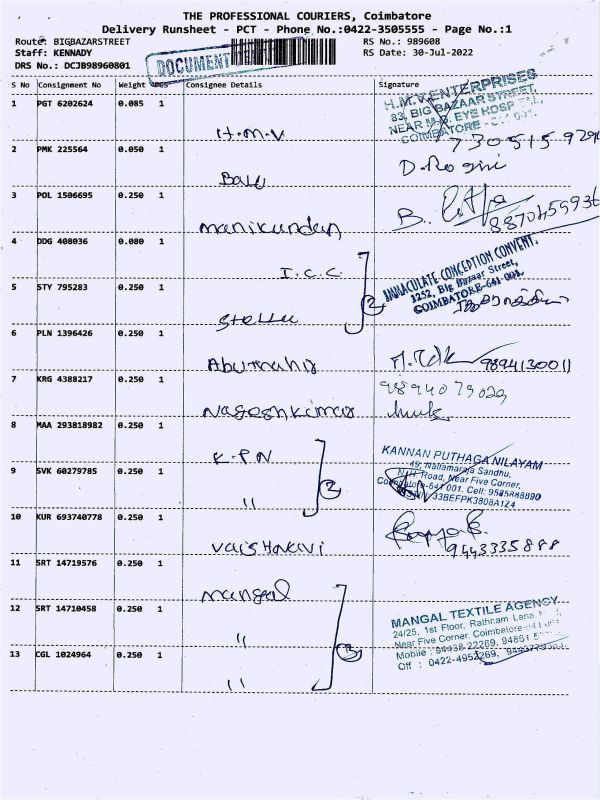 THE PROFESSIONAL COURIERS, Coimbatore
Delivery Runsheet - PCT - Phone No.:0422-3505555 - Page No.:1
Route: BIGBAZARSTREET RS No.: 989608
Staff: KENNADY RS Date: 30-Jul-2022
DRS No.: DCJB98960801
DOCUMENT
S No Consignment No Weight Pcs Consignee Details Signature
1 PGT 6202624 0.085 1 H.M.V
H.M.V. ENTERPRISES
83, BIG BAZAAR STREET,
NEAR EYE HOSP
COIMBATORE
2 PMK 225564 0.050 1 Balu
D. Rogini
3 POL 1506695 0.250 1 manikandan
B.
4 DDG 408036 0.080 1 I.C.C.
5 STY 795283 0.250 1 Stella
2
IMMACULATE CONCEPTION CONVENT,
1252, Big Bazaar Street,
COIMBATORE-641 001.
6 PLN 1396426 0.250 1
9894130011
7 KRG 4388217 0.250 1 Nageshkumar
9894079029
8 MAA 293818982 0.250 1 K.P.N
9 SVK 60279785 0.250 1 "
2
KANNAN PUTHAGA NILAYAM
49, Nallamaraja Sandhu,
N.H. Road, Near Five Corner,
Coimbatore-641 001. Cell: 9585888890
33BEFPK3808A1Z4
10 KUR 693740778 0.250 1 Vaishnavi
9443335888
11 SRT 14719576 0.250 1 mangal
12 SRT 14710458 0.250 1 "
13 CGL 1024964 0.250 1 "
3
MANGAL TEXTILE AGENCY
24/25, 1st Floor, Rathnam Lane,
Near Five Corner, Coimbatore-
Mobile : 94438 22269, 94861
Off : 0422-4952269,